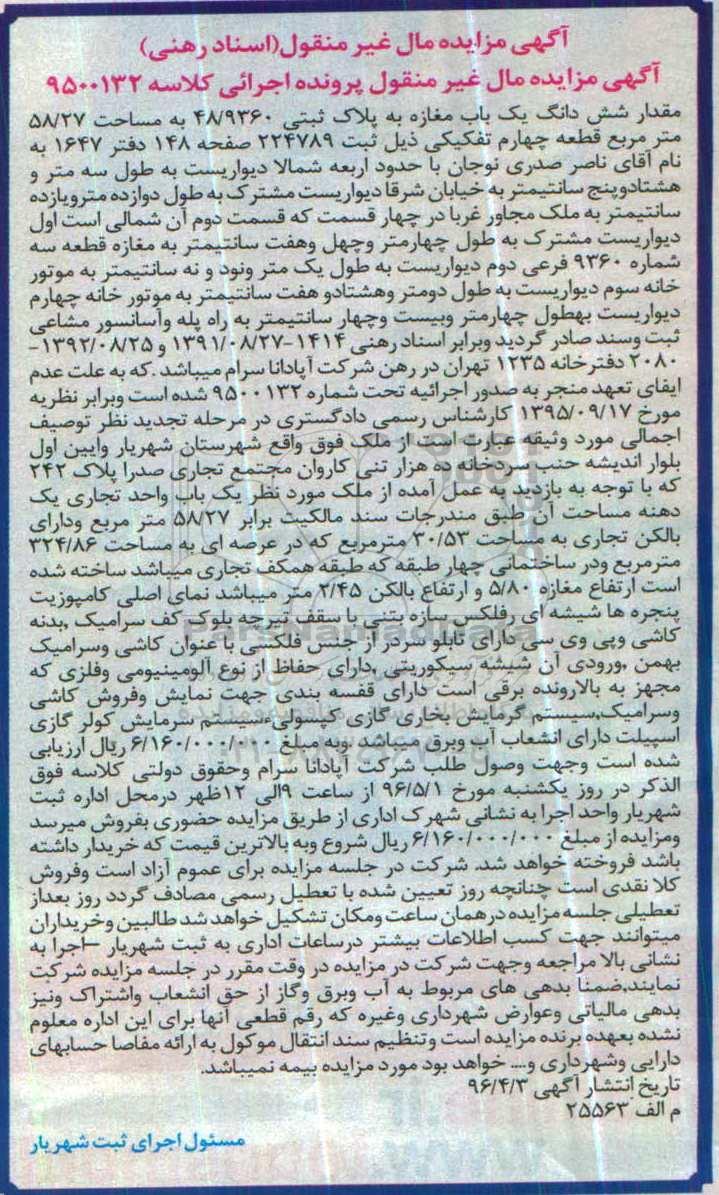 آگهی مزایده مال غیر منقول(اسناد رهنی)
آگهی مزایده مال غیر منقول پرونده اجرائی کلاسه ۹۵۰۰۱۳۲
مقدار شش دانگ یک باب مغازه به پلاک ثبتی ۴۸/۹۳۶۰ به مساحت ۵۸/۲۷
متر مربع قطعه چهارم تفکیکی ذیل ثبت ۲۲۴۷۸۹ صفحه ۱۴۸ دفتر ۱۶۴۷ به
نام آقای ناصر صدری نوجان با حدود اربعه شمالا دیواریست به طول سه متر و
هشتادوپنج سانتیمتر به خیابان شرقا دیواریست مشترک به طول دوازده مترویازده
سانتیمتر به ملک مجاور غربا در چهار قسمت که قسمت دوم آن شمالی است اول
دیواریست مشترک به طول چهارمتر وچهل وهفت سانتیمتر به مغازه قطعه سه
شماره ۹۳۶۰ فرعی دوم دیواریست به طول یک متر ونود و نه سانتیمتر به موتور
خانه سوم دیواریست به طول دومتر وهشتادو هفت سانتیمتر به موتور خانه چهارم
دیواریست بهطول چهارمتر وبیست وچهار سانتیمتر به راه پله وآسانسور مشاعی
ثبت وسند صادر گردید وبرابر اسناد رهنی ۱۴۱۴-۱۳۹۱/۰۸/۲۷ و ۱۳۹۲/۰۸/۲۵-
۲۰۸۰ دفترخانه ۱۲۳۵ تهران در رهن شرکت آپادانا سرام میباشد .که به علت عدم
ایفای تعهد منجر به صدور اجرائیه تحت شماره ۹۵۰۰۱۳۲ شده است وبرابر نظریه
مورخ ۱۳۹۵/۰۹/۱۷ کارشناس رسمی دادگستری در مرحله تجدید نظر توصیف
اجمالی مورد وثیقه عبارت است از ملک فوق واقع شهرستان شهریار وایین اول
بلوار اندیشه جنب سردخانه ده هزار تنی کاروان مجتمع تجاری صدرا پلاک ۲۴۲
که با توجه به بازدید به عمل آمده از ملک مورد نظر یک باب واحد تجاری یک
دهنه مساحت آن طبق مندرجات سند مالکیت برابر ۵۸/۲۷ متر مربع ودارای
بالکن تجاری به مساحت ۳۰/۵۳ مترمربع که در عرصه ای به مساحت ۳۲۴/۸۶
مترمربع ودر ساختمانی چهار طبقه که طبقه همکف تجاری میباشد ساخته شده
است ارتفاع مغازه ۵/۸۰ و ارتفاع بالکن ۲/۴۵ متر میباشد نمای اصلی کامپوزیت
پنجره ها شیشه ای رفلکس سازه بتنی با سقف تیرچه بلوک کف سرامیک ,بدنه
کاشی وپی وی سی دارای تابلو سردر از جنس فلکسی با عنوان کاشی وسرامیک
بهمن ,ورودی آن شیشه سیکوریتی ,دارای حفاظ از نوع آلومینیومی وفلزی که
مجهز به بالارونده برقی است دارای قفسه بندی جهت نمایش وفروش کاشی
وسرامیک,سیستم گرمایش بخاری گازی کپسولی,سیستم سرمایش کولر گازی
اسپیلت دارای انشعاب آب وبرق میباشد .وبه مبلغ ۶/۱۶۰/۰۰۰/۰۰۰ ریال ارزیابی
شده است وجهت وصول طلب شرکت آپادانا سرام وحقوق دولتی کلاسه فوق
الذکر در روز یکشنبه مورخ ۹۶/۵/۱ از ساعت ۹الی ۱۲ظهر درمحل اداره ثبت
شهریار واحد اجرا به نشانی شهرک اداری از طریق مزایده حضوری بفروش میرسد
ومزایده از مبلغ ۶/۱۶۰/۰۰۰/۰۰۰ ریال شروع وبه بالاترین قیمت که خریدار داشته
باشد فروخته خواهد شد. شرکت در جلسه مزایده برای عموم آزاد است وفروش
کلا نقدی است چنانچه روز تعیین شده با تعطیل رسمی مصادف گردد روز بعداز
تعطیلی جلسه مزایده درهمان ساعت ومکان تشکیل خواهد شد طالبین وخریداران
میتوانند جهت کسب اطلاعات بیشتر درساعات اداری به ثبت شهریار –اجرا به
نشانی بالا مراجعه وجهت شرکت در مزایده در وقت مقرر در جلسه مزایده شرکت
نمایند.ضمنا بدهی های مربوط به آب وبرق وگاز از حق انشعاب واشتراک ونیز
بدهی مالیاتی وعوارض شهرداری وغیره که رقم قطعی آنها برای این اداره معلوم
نشده بعهده برنده مزایده است وتنظیم سند انتقال موکول به ارائه مفاصا حسابهای
دارایی وشهرداری و.... خواهد بود مورد مزایده بیمه نمیباشد.
تاریخ انتشار آگهی ۹۶/۴/۳
م الف ۲۵۵۶۳
مسئول اجرای ثبت شهریار